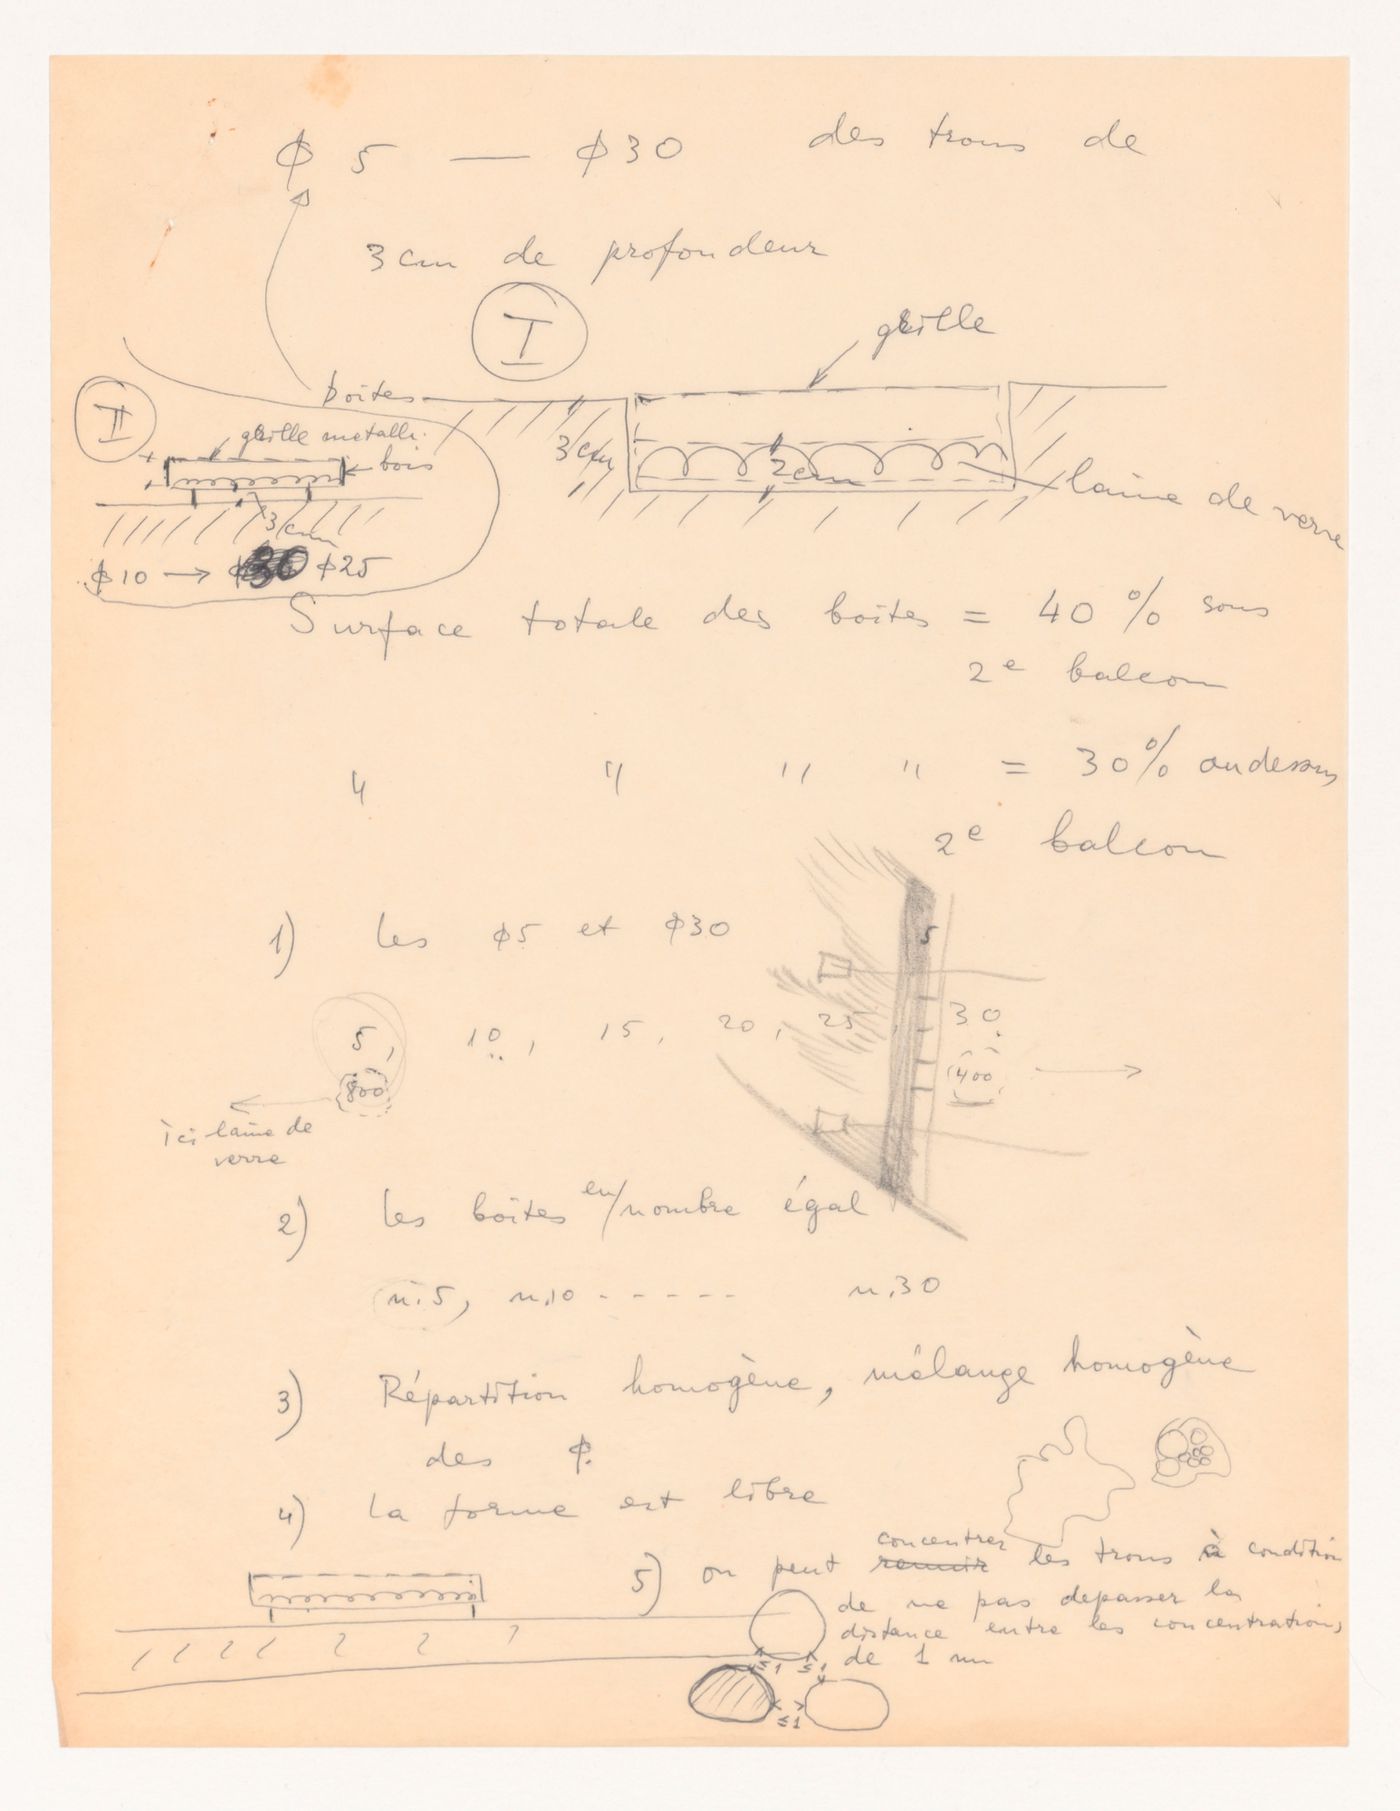 φ 5 — φ30 des trous de
3 cm de profondeur
I
grille
boîtes
3 cm
2 cm
laine de verre
II
grille metalli.
bois
3 cm
φ10 → φ30 φ25
Surface totale des boîtes = 40 % sous
2e balcon
" " " " = 30% au dessus
2e balcon
1) les φ5 et φ30
5
5, 10, 15, 20, 25, 30
800 400
ici laine de
verre
2) les boîtes en nombre égal
n.5, n.10 ----- n.30
3) Répartition homogène, mélange homogène
des φ.
4) la forme est libre
5) on peut reunir concentrer les trous à condition
de ne pas depasser la
distance entre les concentrations
de 1 m
≤1 ≤1
≤1